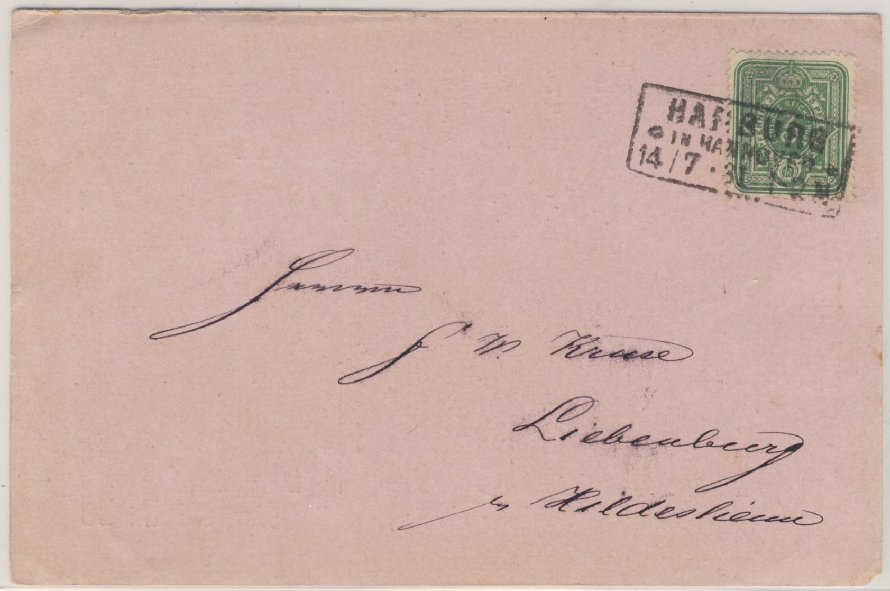 HARBURG
IN HANNOVER
14/7
Herrn
W. Kruse
Liebenburg
Hildesheim